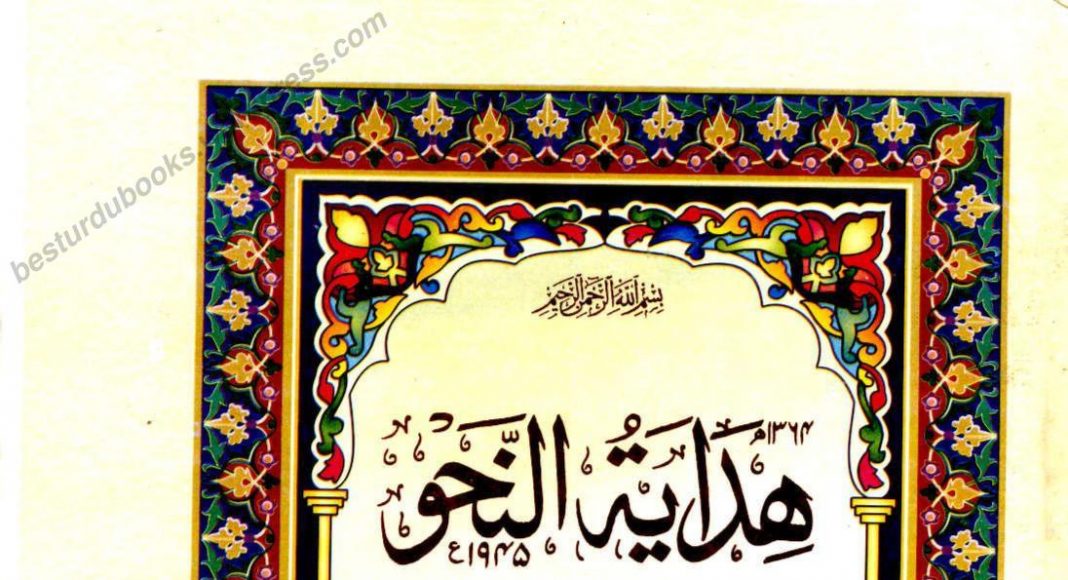 besturdubooks.
ess.com
بِسْمِ اللّٰهِ الرَّحْمٰنِ الرَّحِيْمِ
۱۳۶۴م
هِدَايَةُ النَّحْو
۱۹۴۵ع